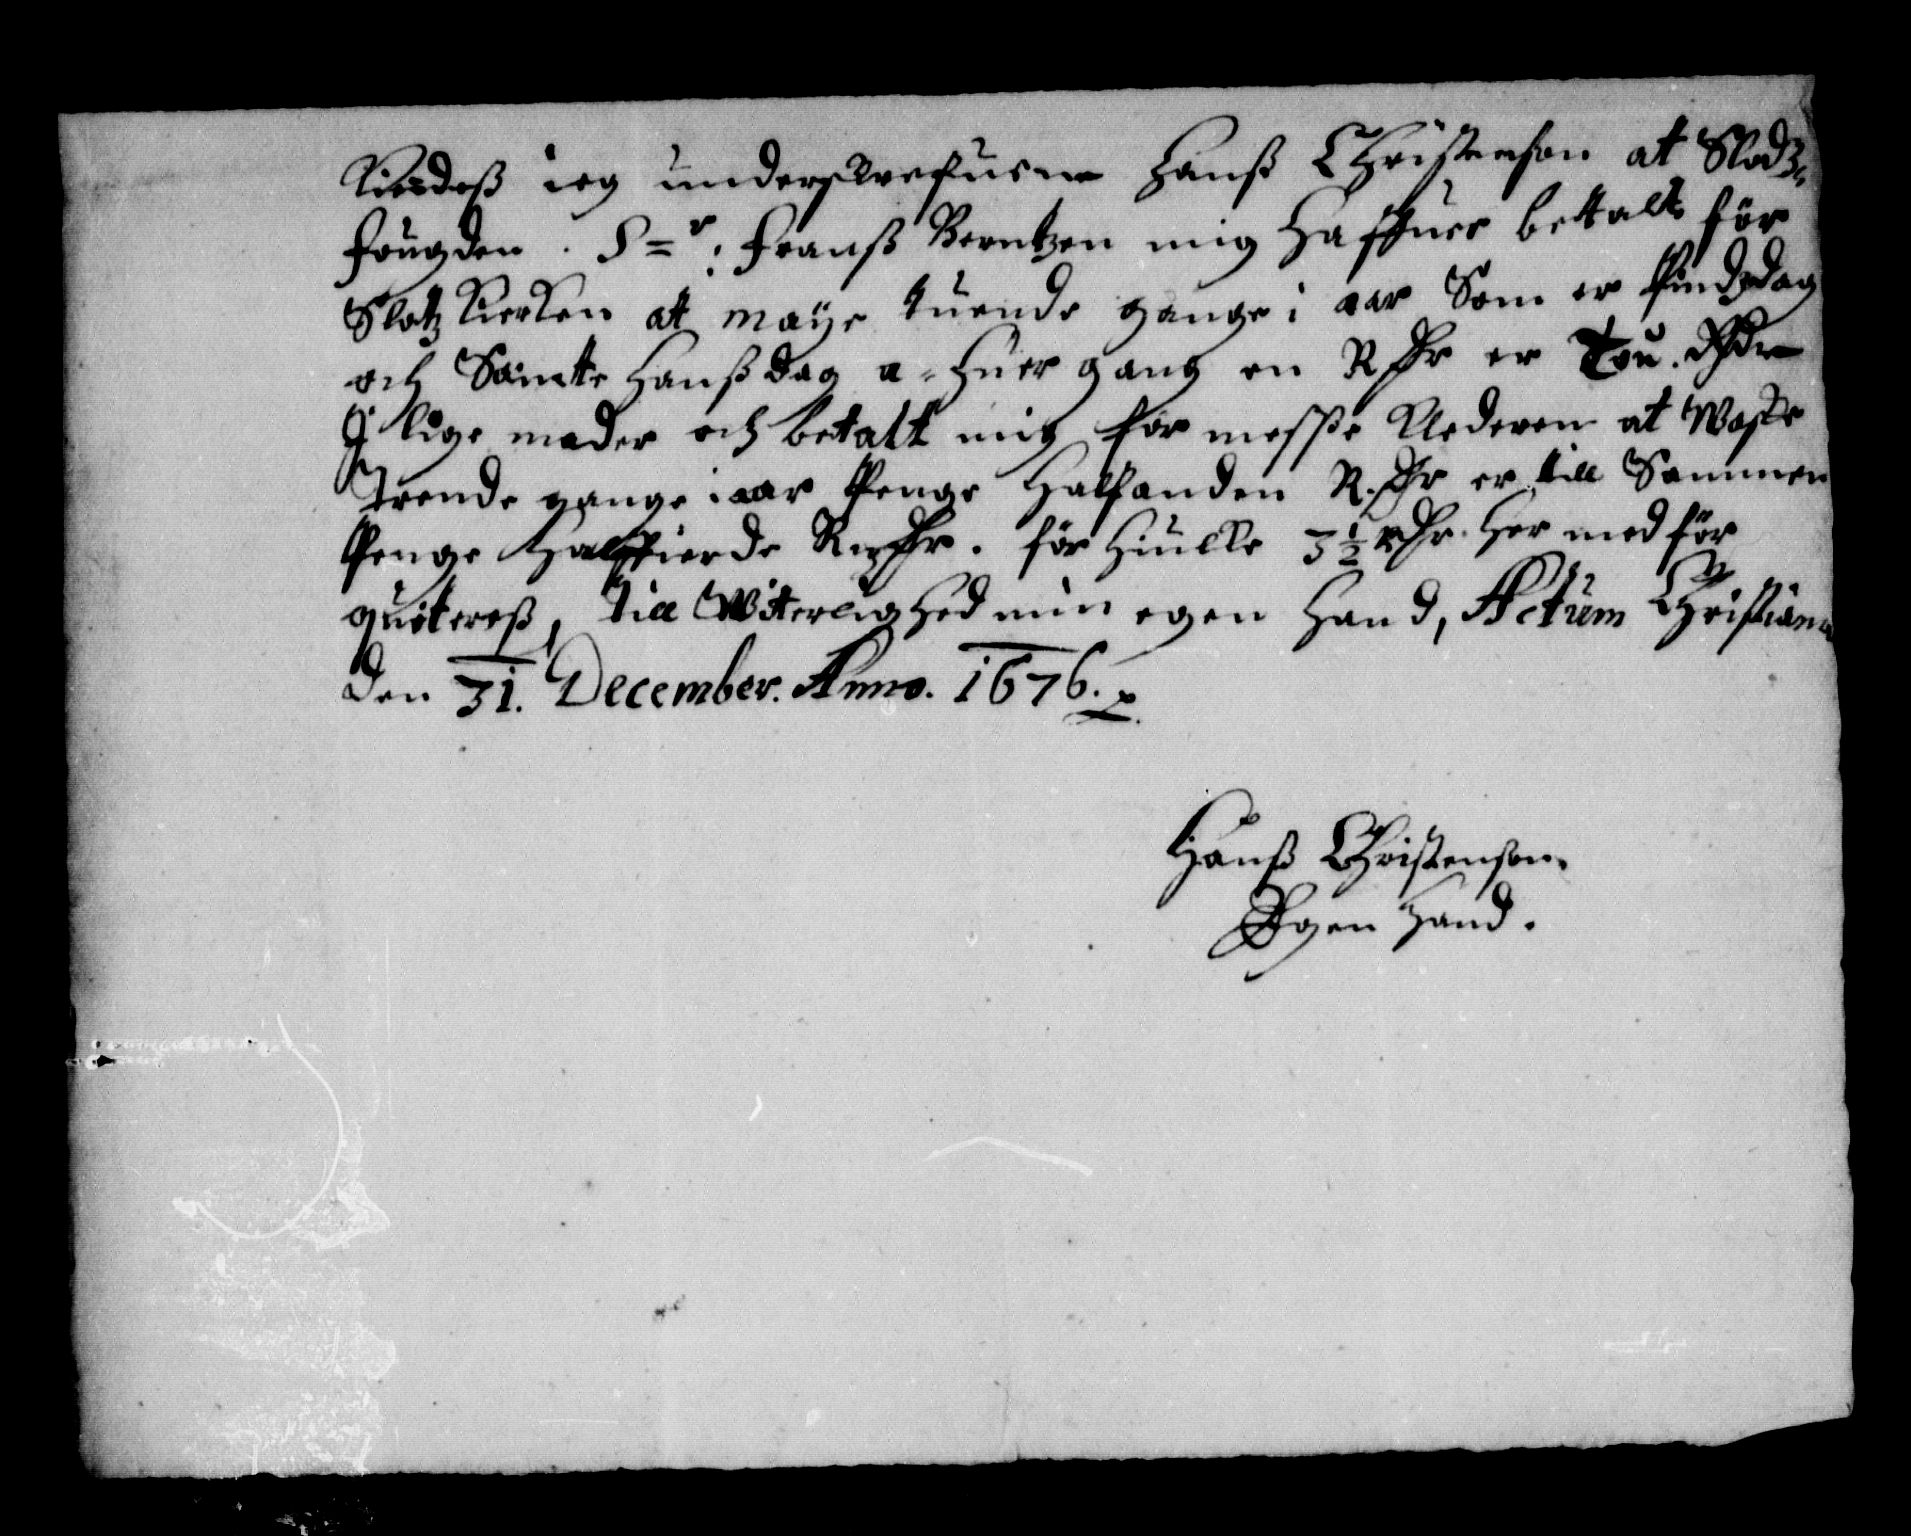 Kiendeß ieg underskrefuene Hanß Christenson at Slodtz
fougden. S=r: Franß Berntzen mig Haffuer bettalt för
Slotz Kierken at maÿe tuende gange i aar Som er Pindzdag
och Sancte Hanßdag a-Huer gang en Rdr er Tou. Rdr
J lige mader och betalt mig for messße Klederen at Waske
Trende gange i aar Penge Halfanden R.dr er till Sammen
Penge Halffierde Rixdr. för Huilke 3½ Rdr. Her med för
quitereß, till Witerlighed min egen Hand, Actum Christiania
den 31. December. Anno. 1676.
Hanß Christenson.
Egen Hand.